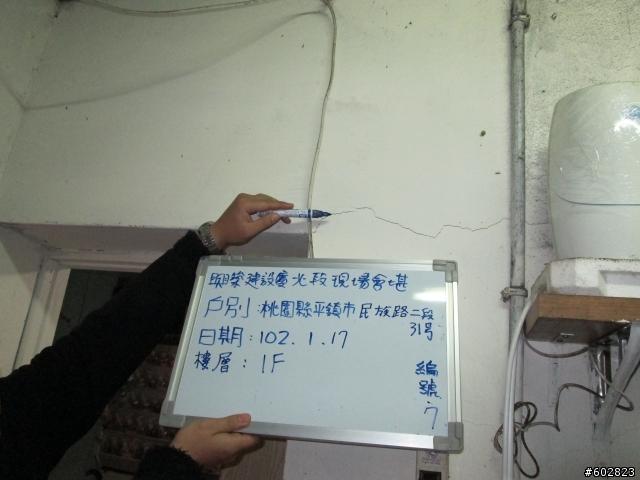 建設廣光段現場會堪
戶別:桃園縣平鎮市民族路二段
31号
日期:102.1.17
樓層:1F
編號:7
#602823